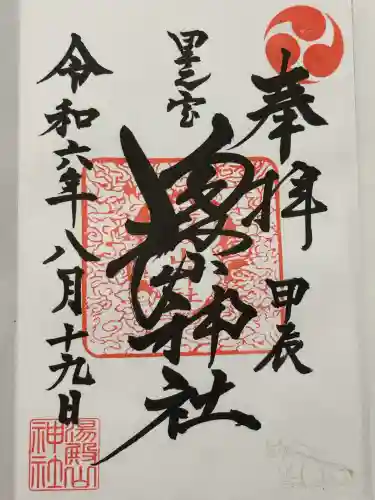 奉拝
甲辰
里之宮
湯殿山神社
令和六年八月十九日
湯殿山
神社